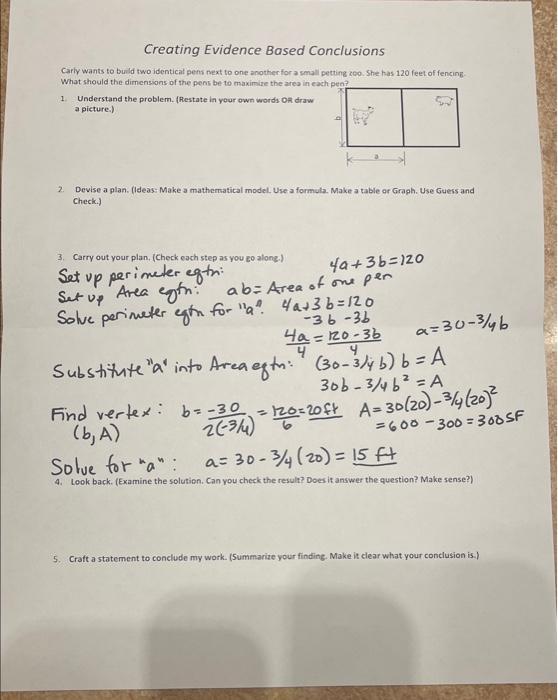 Creating Evidence Based Conclusions
Carly wants to build two identical pens next to one another for a small petting zoo. She has 120 feet of fencing.
What should the dimensions of the pens be to maximize the area in each pen?
1. Understand the problem. (Restate in your own words OR draw
a picture.)
b
a
2. Devise a plan. (Ideas: Make a mathematical model. Use a formula. Make a table or Graph. Use Guess and
Check.)
3. Carry out your plan. (Check each step as you go along.)
Set up perimeter eqtn: 4a+3b=120
Set up Area eqtn: ab = Area of one pen
Solve perimeter eqtn for "a". 4a+3b=120
-3b -3b
4a/4 = 120-3b/4 a=30-3/4b
Substitute "a" into Area eqtn: (30-3/4b)b = A
30b-3/4b² = A
Find vertex: b = -30/2(-3/4) = 120/6 = 20ft A=30(20)-3/4(20)²
(b,A) =600-300=300SF
Solve for "a": a=30-3/4(20)=15 ft
4. Look back. (Examine the solution. Can you check the result? Does it answer the question? Make sense?)
5. Craft a statement to conclude my work. (Summarize your finding. Make it clear what your conclusion is.)